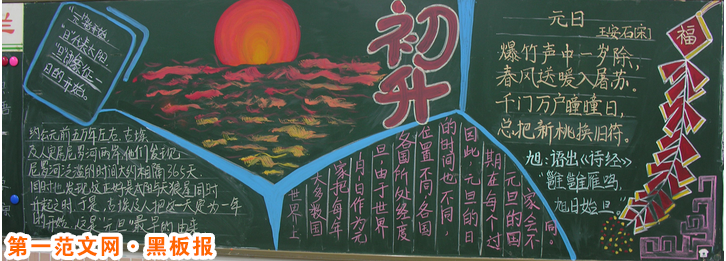 "元"是开始
"日"代表太阳
"旦"象征一
日的开始。
初升
元日
王安石[宋]
爆竹声中一岁除,
春风送暖入屠苏。
千门万户曈曈日,
总把新桃换旧符。
旭:语出《诗经》
"雝雝雁鸣,
旭日始旦。"
福
约公元前五万年左右,古埃
及人
尼罗河泛滥的时间大约相隔365天,
同时也发现
升起之时,于是,古埃及人把这一天定为一年
的开始,这是"元旦"最早的由来
世界上
大多数国
家把每年
1月1日作为元
旦,由于世界
各国所处经度
位置不同,各国
的时间也不同,
因此,元旦的日
期在每个
元旦的国
家会不
同。
第一范文网·黑板报